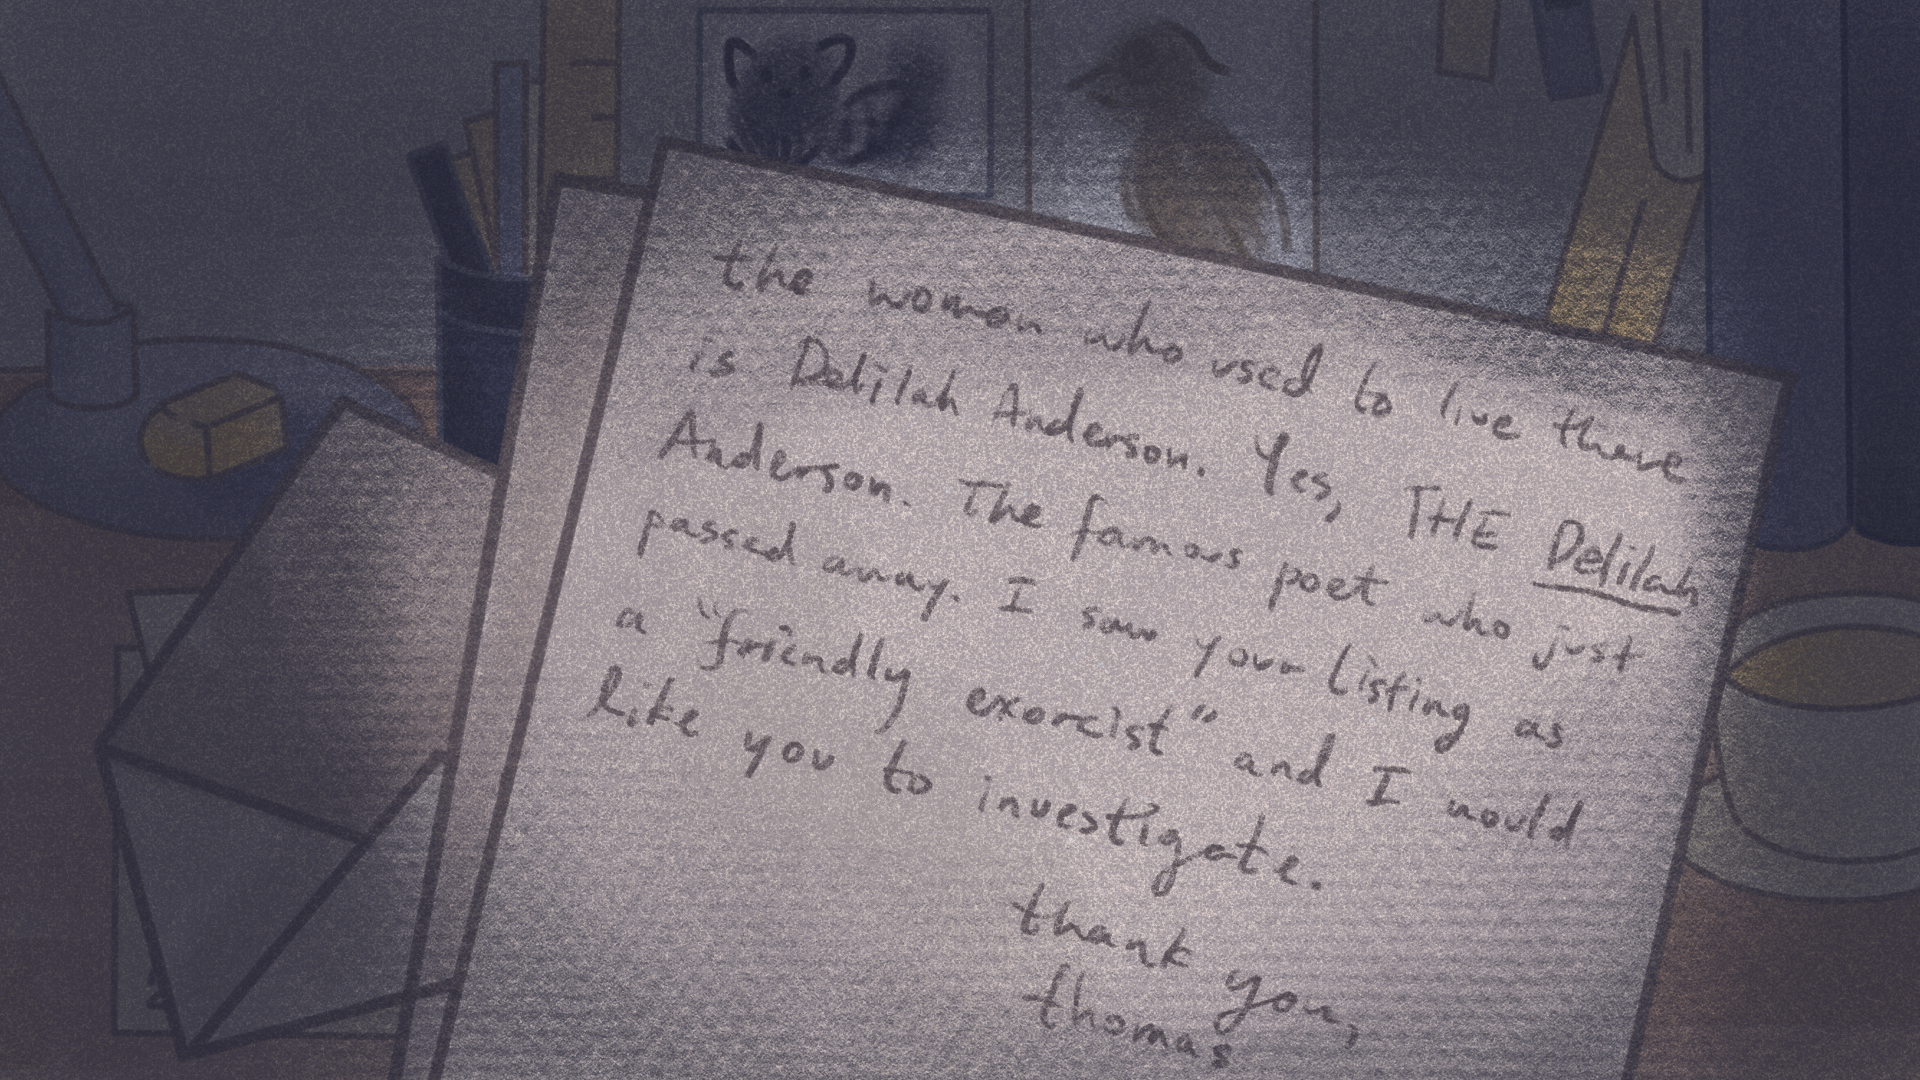 the woman who used to live there
is Delilah Anderson. Yes, THE Delilah
Anderson. The famous poet who just
passed away. I saw your listing as
a “friendly exorcist” and I would
like you to investigate.
thank you,
thomas